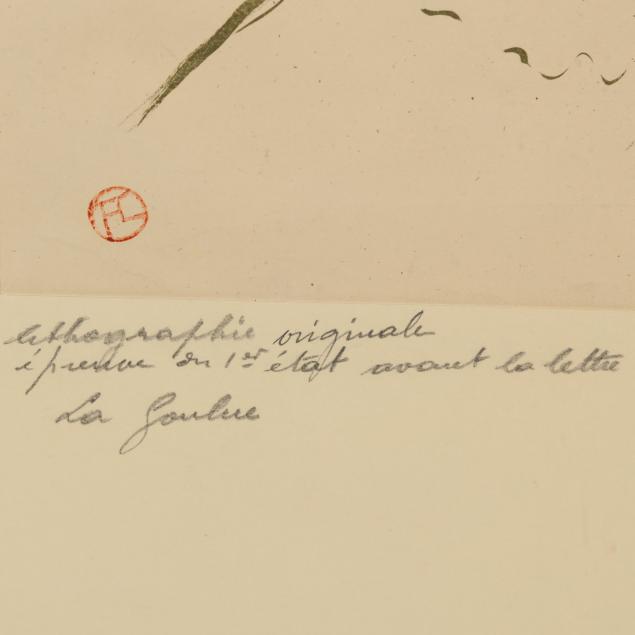 lithographie originale
épreuve du 1er état avant la lettre
La Goulue